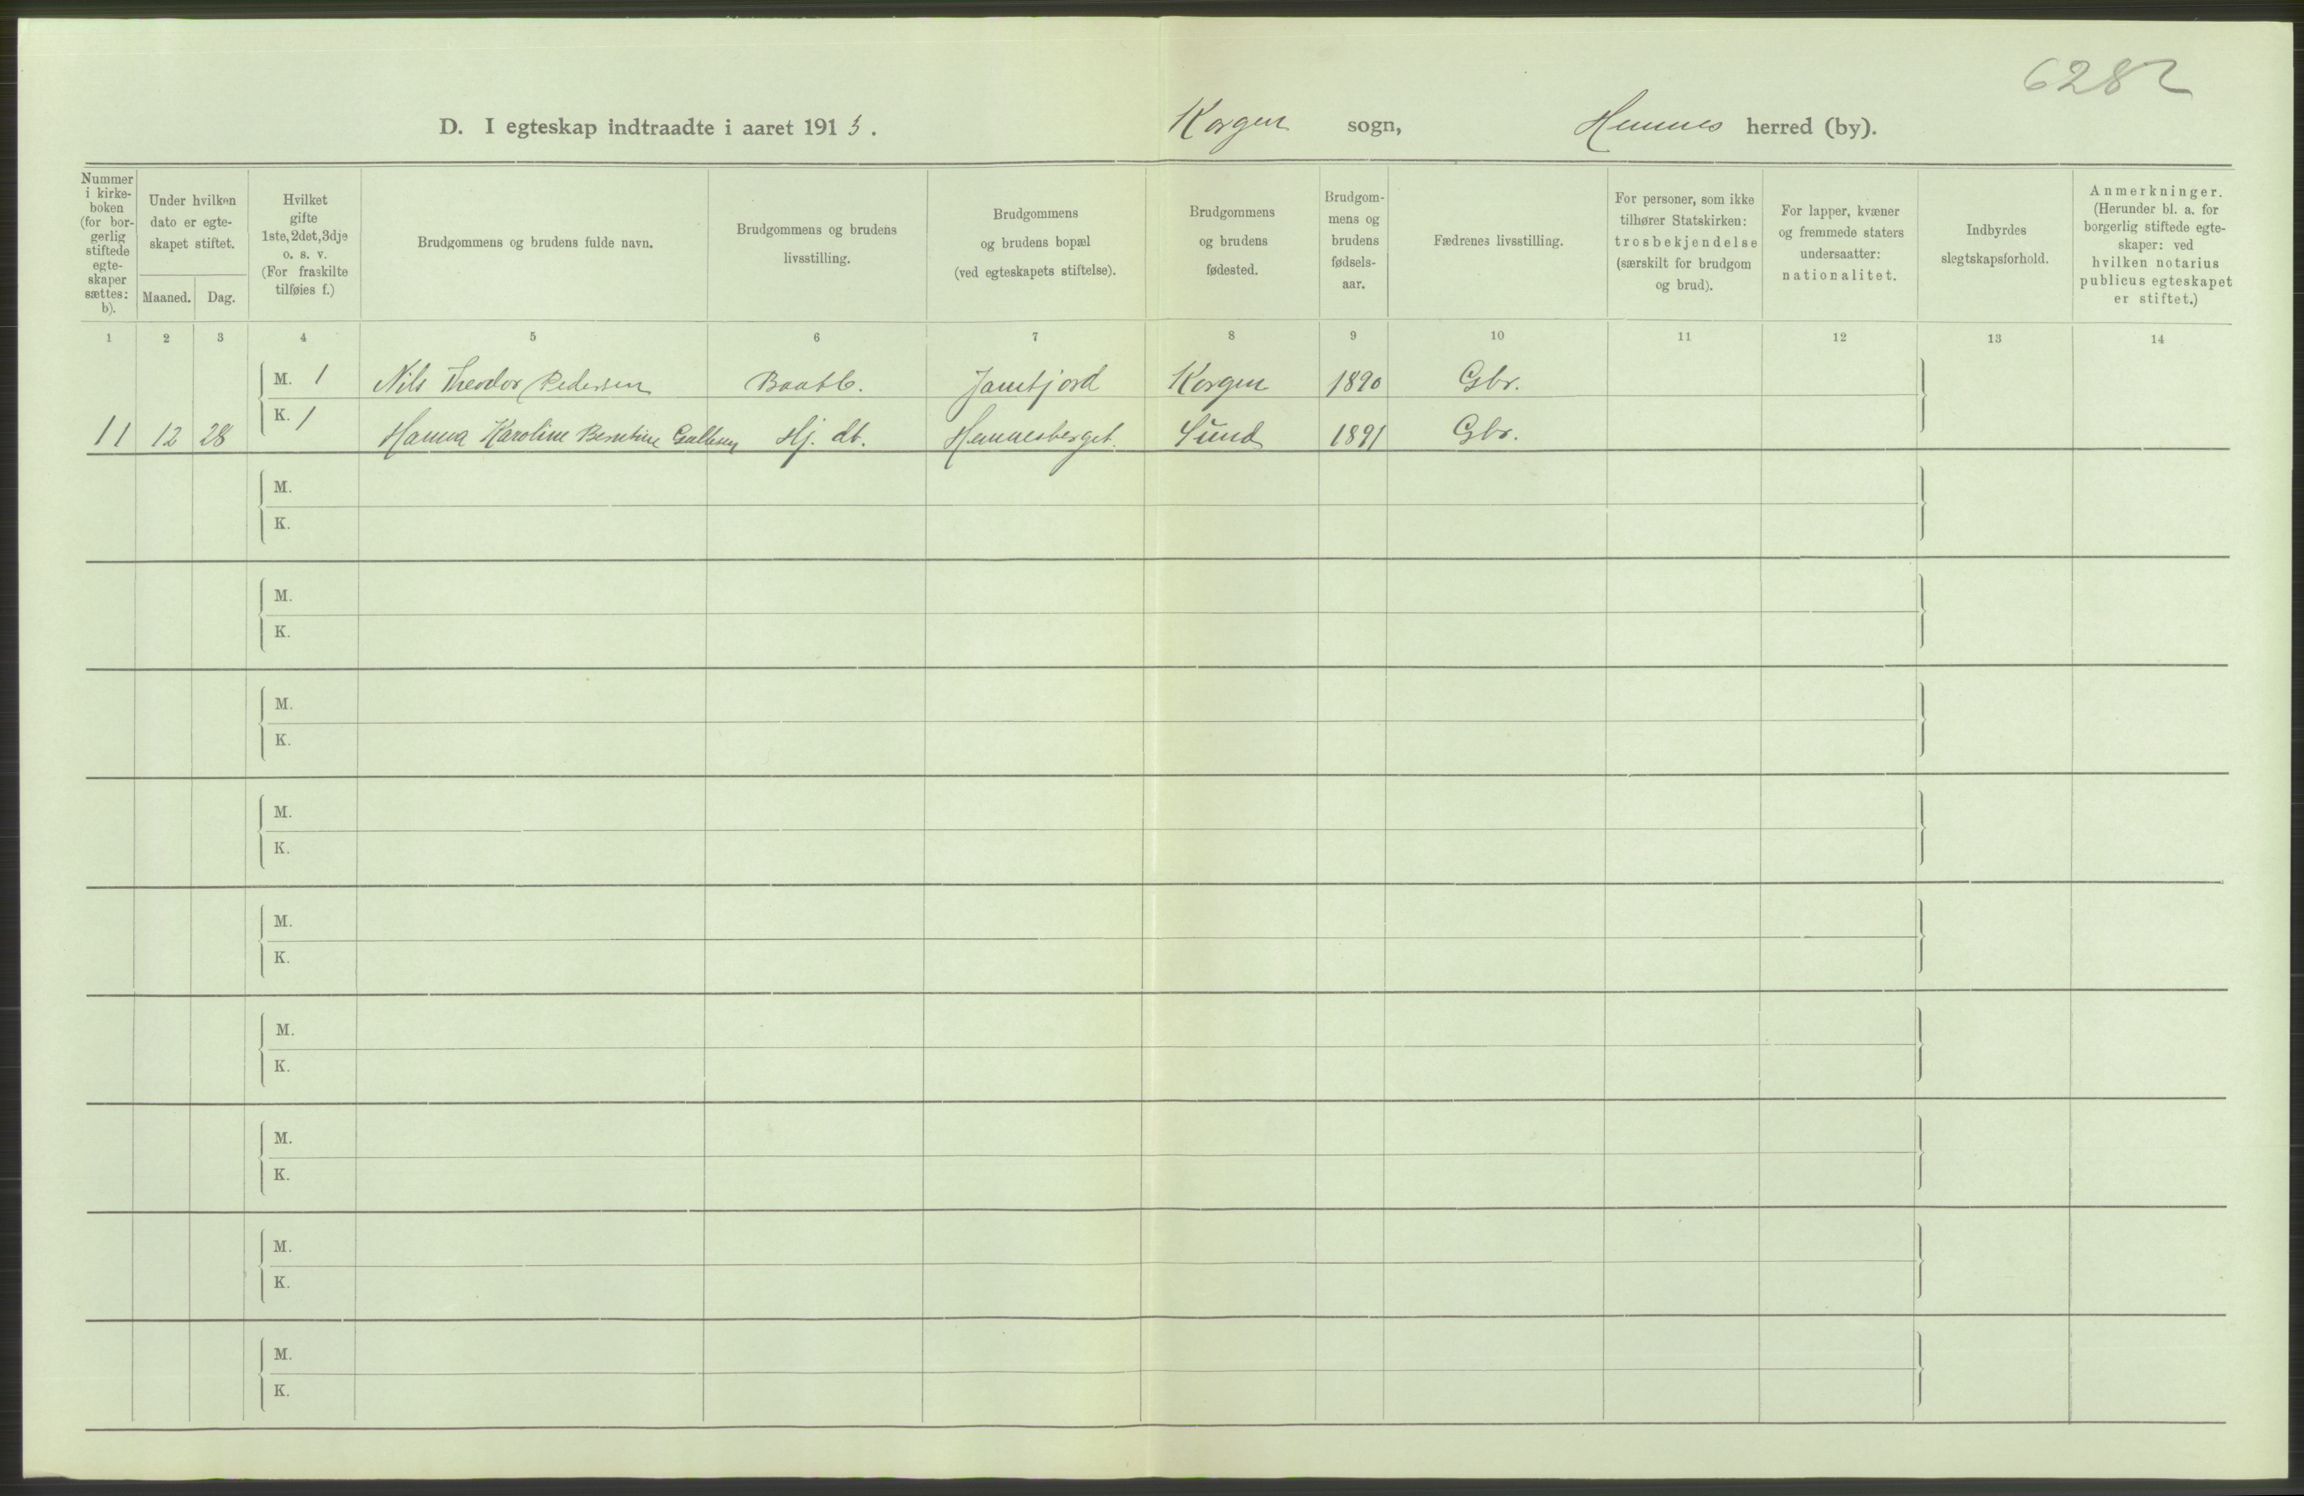 6282
D. I egteskap indtraadte i aaret 1913. Korgen sogn, Hemnes herred (by).
Nummer i kirke-boken (for bor-gerlig stiftede egte-skaper sættes: b).
Under hvilken dato er egte-skapet stiftet.
Maaned. Dag.
Hvilket gifte 1ste, 2det, 3dje o. s. v. (For fraskilte tilføies f.)
Brudgommens og brudens fulde navn.
Brudgommens og brudens livsstilling.
Brudgommens og brudens bopæl (ved egteskapets stiftelse).
Brudgommens og brudens fødested.
Brudgom-mens og brudens fødsels-aar.
Fædrenes livsstilling.
For personer, som ikke tilhører Statskirken: trosbekjendelse (særskilt for brudgom og brud).
For lapper, kvæner og fremmede staters undersaatter: nationalitet.
Indbyrdes slegtskapsforhold.
Anmerkninger. (Herunder bl. a. for borgerlig stiftede egte-skaper: ved hvilken notarius publicus egteskapet er stiftet.)
1 2 3 4 5 6 7 8 9 10 11 12 13 14
M. 1 Nils Theodor Pedersen Baatb. Korgen 1890 Gbr.
11 12 28 K. 1 Hanna Karoline Berntine Hj. dt. Hemnesberget Sund 1891 Gbr.
M.
K.
M.
K.
M.
K.
M.
K.
M.
K.
M.
K.
M.
K.
M.
K.
M.
K.